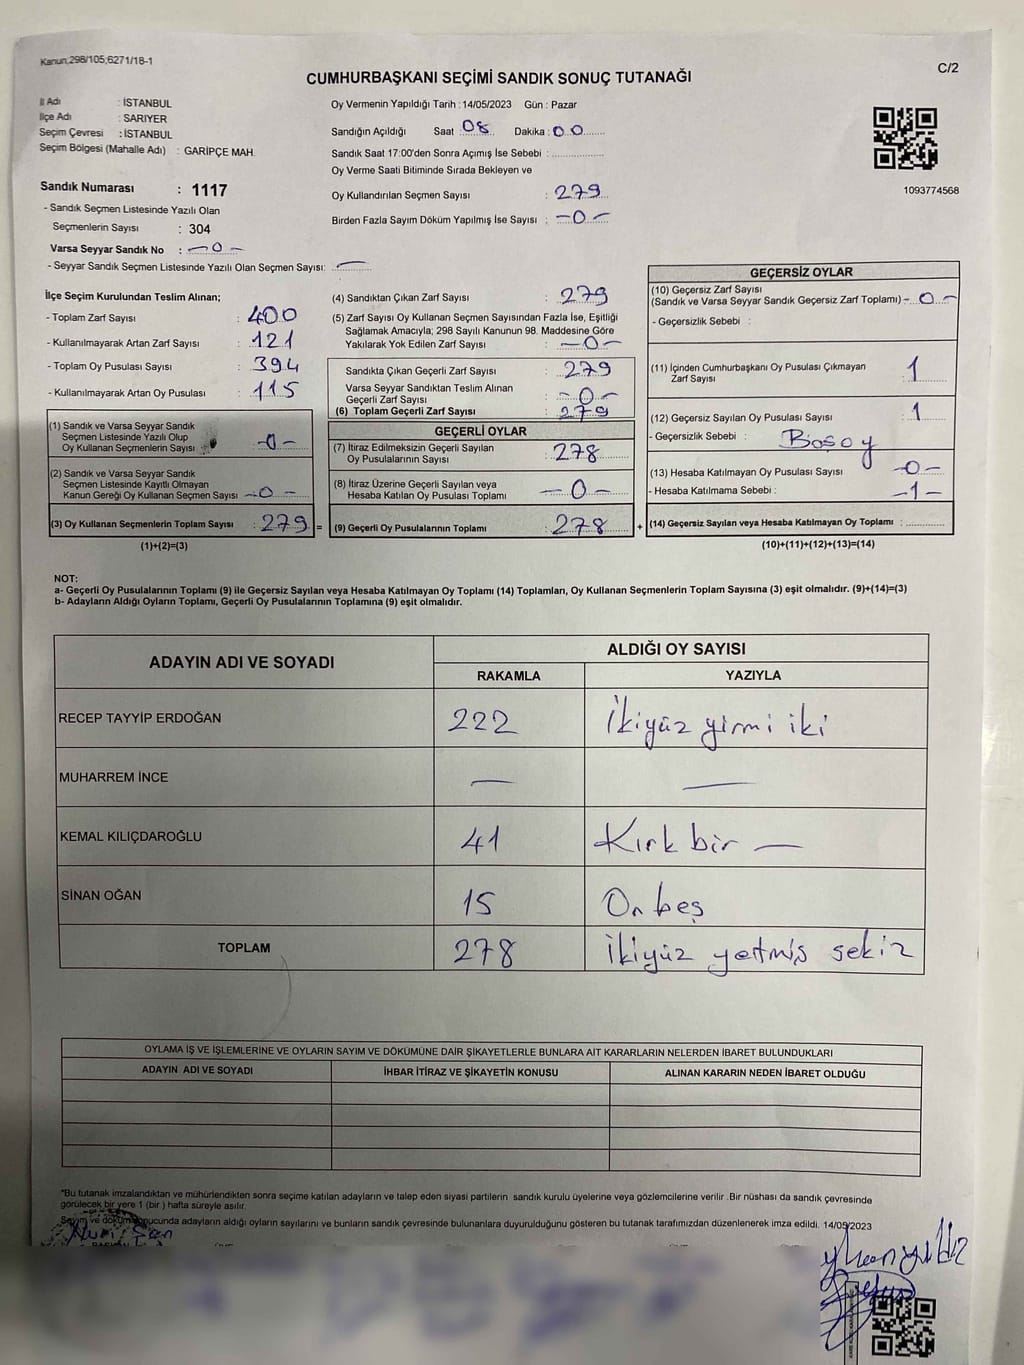 Kanun,298/105;6271/18-1
CUMHURBAŞKANI SEÇİMİ SANDIK SONUÇ TUTANAĞI
C/2
İl Adı : İSTANBUL
İlçe Adı : SARIYER
Seçim Çevresi : İSTANBUL
Seçim Bölgesi (Mahalle Adı) : GARİPÇE MAH.
Oy Vermenin Yapıldığı Tarih : 14/05/2023 Gün : Pazar
Sandığın Açıldığı Saat : 08 Dakika : 00
Sandık Saat 17:00'den Sonra Açımış İse Sebebi :
Oy Verme Saati Bitiminde Sırada Bekleyen ve
Oy Kullandırılan Seçmen Sayısı : 279
Birden Fazla Sayım Döküm Yapılmış İse Sayısı : -0-
1093774568
Sandık Numarası : 1117
- Sandık Seçmen Listesinde Yazılı Olan
Seçmenlerin Sayısı : 304
Varsa Seyyar Sandık No : -0-
- Seyyar Sandık Seçmen Listesinde Yazılı Olan Seçmen Sayısı: —
İlçe Seçim Kurulundan Teslim Alınan;
- Toplam Zarf Sayısı : 400
- Kullanılmayarak Artan Zarf Sayısı : 121
- Toplam Oy Pusulası Sayısı : 394
- Kullanılmayarak Artan Oy Pusulası : 115
(1) Sandık ve Varsa Seyyar Sandık
Seçmen Listesinde Yazılı Olup
Oy Kullanan Seçmenlerin Sayısı : -0-
(2) Sandık ve Varsa Seyyar Sandık
Seçmen Listesinde Kayıtlı Olmayan
Kanun Gereği Oy Kullanan Seçmen Sayısı -0-
(3) Oy Kullanan Seçmenlerin Toplam Sayısı : 279 =
(1)+(2)=(3)
(4) Sandıktan Çıkan Zarf Sayısı : 279
(5) Zarf Sayısı Oy Kullanan Seçmen Sayısından Fazla İse, Eşitliği
Sağlamak Amacıyla; 298 Sayılı Kanunun 98. Maddesine Göre
Yakılarak Yok Edilen Zarf Sayısı : -0-
Sandıkta Çıkan Geçerli Zarf Sayısı : 279
Varsa Seyyar Sandıktan Teslim Alınan
Geçerli Zarf Sayısı : -0-
(6) Toplam Geçerli Zarf Sayısı : 279
GEÇERLİ OYLAR
(7) İtiraz Edilmeksizin Geçerli Sayılan
Oy Pusulalarının Sayısı : 278
(8) İtiraz Üzerine Geçerli Sayılan veya
Hesaba Katılan Oy Pusulası Toplamı -0-
(9) Geçerli Oy Pusulalarının Toplamı : 278 +
GEÇERSİZ OYLAR
(10) Geçersiz Zarf Sayısı
(Sandık ve Varsa Seyyar Sandık Geçersiz Zarf Toplamı) -0-
- Geçersizlik Sebebi :
(11) İçinden Cumhurbaşkanı Oy Pusulası Çıkmayan
Zarf Sayısı 1
(12) Geçersiz Sayılan Oy Pusulası Sayısı : 1
- Geçersizlik Sebebi :
(13) Hesaba Katılmayan Oy Pusulası Sayısı -0-
- Hesaba Katılmama Sebebi : -1-
(14) Geçersiz Sayılan veya Hesaba Katılmayan Oy Toplamı :
(10)+(11)+(12)+(13)=(14)
NOT:
a- Geçerli Oy Pusulalarının Toplamı (9) ile Geçersiz Sayılan veya Hesaba Katılmayan Oy Toplamı (14) Toplamları, Oy Kullanan Seçmenlerin Toplam Sayısına (3) eşit olmalıdır. (9)+(14)=(3)
b- Adayların Aldığı Oyların Toplamı, Geçerli Oy Pusulalarının Toplamına (9) eşit olmalıdır.
ADAYIN ADI VE SOYADI
ALDIĞI OY SAYISI
RAKAMLA YAZIYLA
RECEP TAYYİP ERDOĞAN 222 İkiyüz yirmi iki
MUHARREM İNCE — —
KEMAL KILIÇDAROĞLU 41 Kırk bir —
SİNAN OĞAN 15 On beş
TOPLAM 278 İkiyüz yetmiş sekiz
OYLAMA İŞ VE İŞLEMLERİNE VE OYLARIN SAYIM VE DÖKÜMÜNE DAİR ŞİKAYETLERLE BUNLARA AİT KARARLARIN NELERDEN İBARET BULUNDUKLARI
ADAYIN ADI VE SOYADI İHBAR İTİRAZ VE ŞİKAYETİN KONUSU ALINAN KARARIN NEDEN İBARET OLDUĞU
*Bu tutanak imzalandıktan ve mühürlendikten sonra seçime katılan adayların ve talep eden siyasi partilerin sandık kurulu üyelerine veya gözlemcilerine verilir .Bir nüshası da sandık çevresinde
görülecek bir yere 1 (bir ) hafta süreyle asılır.
Sayım ve döküm sonucunda adayların aldığı oyların sayılarını ve bunların sandık çevresinde bulunanlara duyurulduğunu gösteren bu tutanak tarafımızdan düzenlenerek imza edildi. 14/05/2023
Nuri Şen